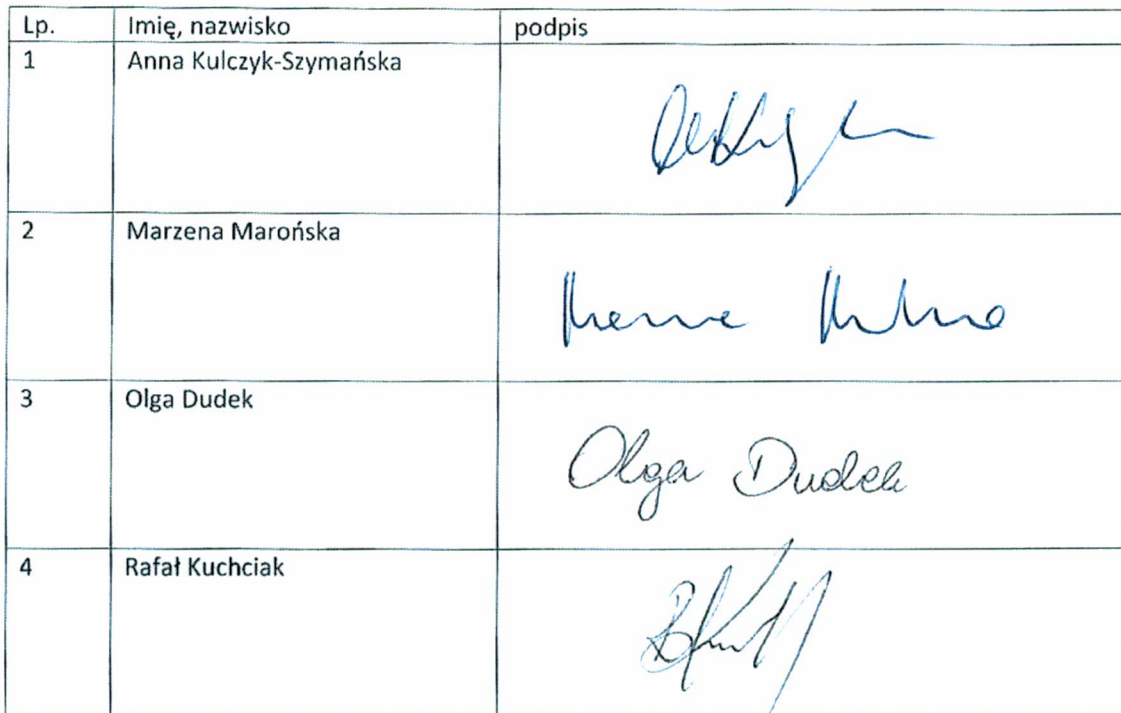 Lp. Imię, nazwisko podpis
1 Anna Kulczyk-Szymańska
2 Marzena Marońska
3 Olga Dudek
Olga Dudek
4 Rafał Kuchciak